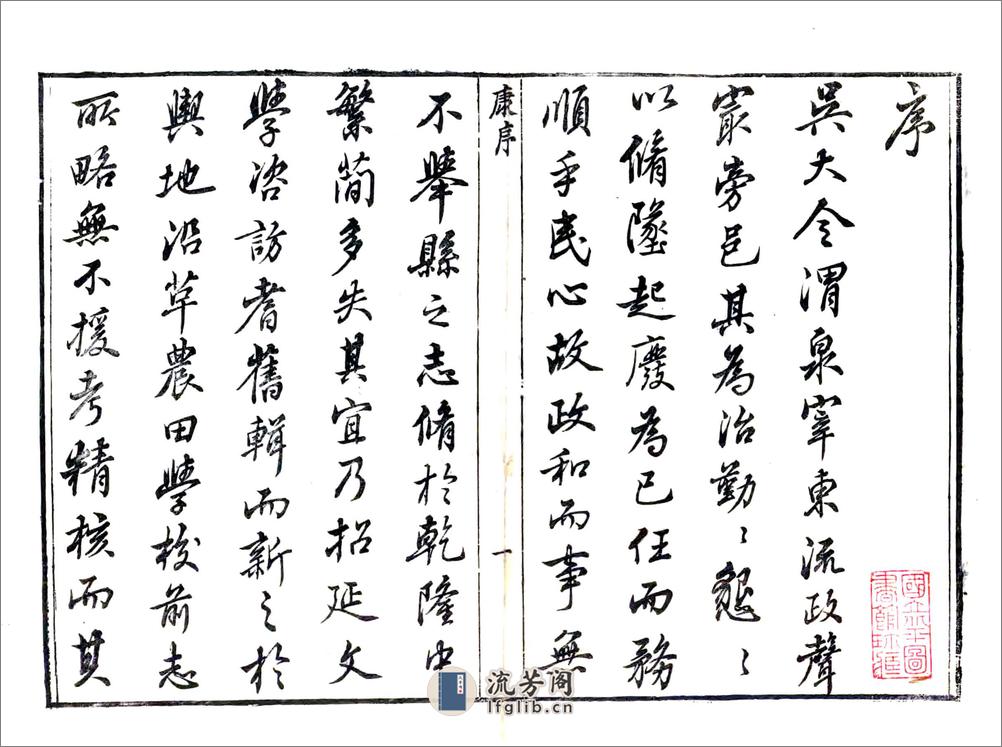 序
吳大令渭泉宰東流政聲
冣旁邑其為治勤〻懇〻
以脩墜起廢為已任而務
順乎民心故政和而事無
康序
一
不舉縣之志脩於乾隆中
繁簡多失其宜乃招延文
學咨訪耆舊輯而新之於
輿地沿革農田學校前志
所略無不援考精核而其
流芳阁
lfglib.cn